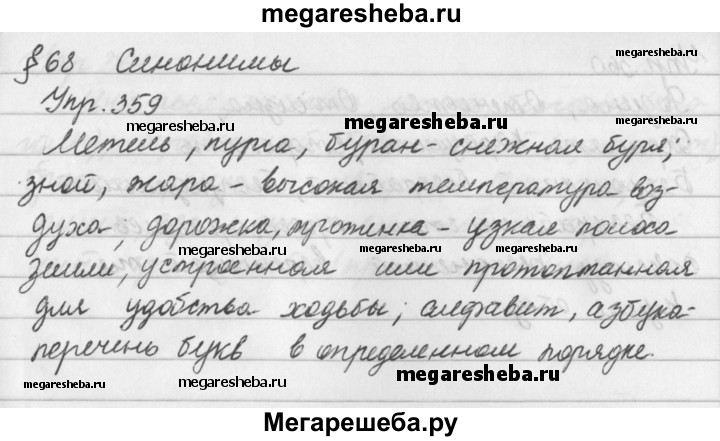 megaresheba.ru
§68 Синонимы
megaresheba.ru
Упр. 359
megaresheba.ru
megaresheba.ru
Метель, пурга, буран - снежная буря;
megaresheba.ru
megaresheba.ru
зной, жара - высокая температура воз-
духа, дорожка, тропинка - узкая полоса
megaresheba.ru
megaresheba.ru
megaresheba.ru
земли, устроенная или протоптанная
для удобства ходьбы; алфавит, азбука-
перечень букв в определенном порядке.
megaresheba.ru
megaresheba.ru
megaresheba.ru
megaresheba.ru
Мегарешеба.ру